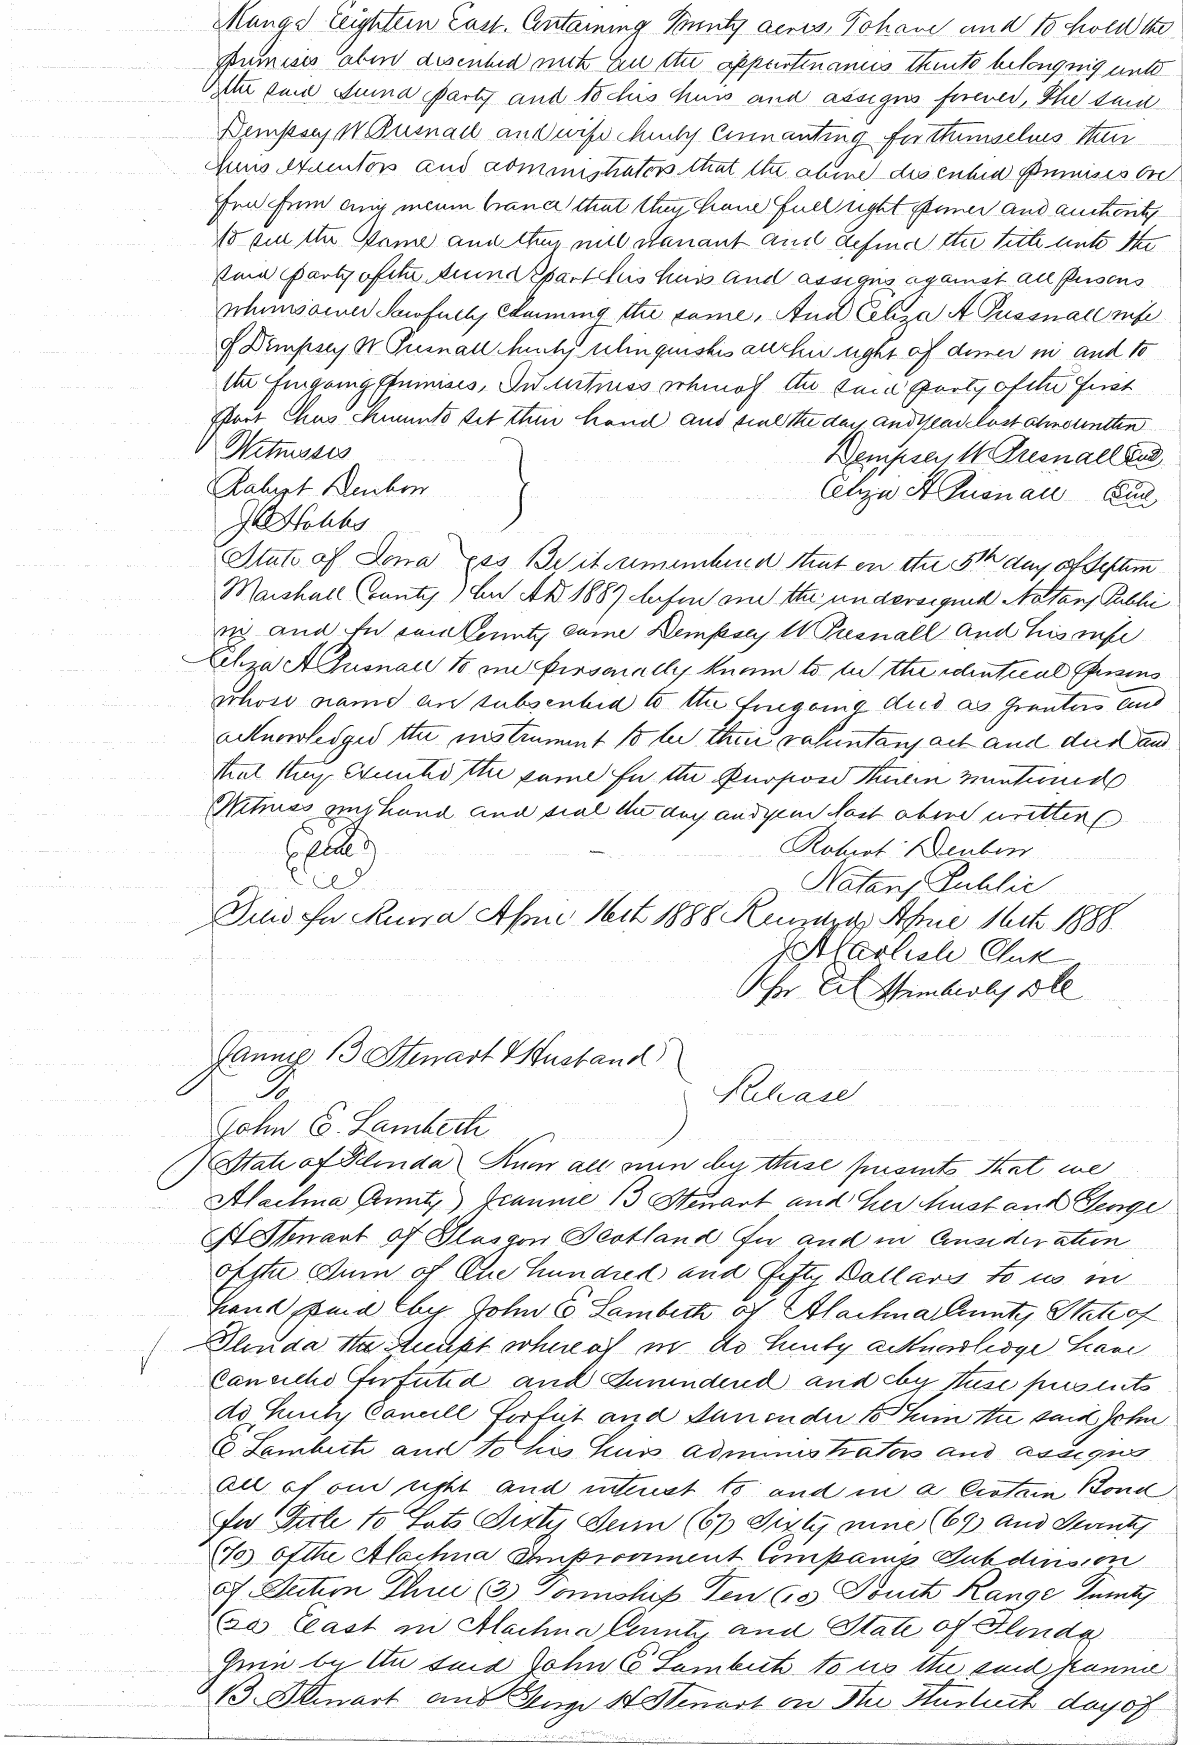 Range Eighteen East. Containing Twenty acres, To have and to hold the
premises above described with all the appurtenances thereto belonging unto
the said second party and to his heirs and assigns forever, The said
Dempsey W Presnall and wife hereby covenanting for themselves their
heirs executors and administrators that the above described premises are
free from any incumbrance that they have full right power and authority
to sell the same and they will warrant and defend the title unto the
said party of the second part his heirs and assigns against all persons
whomsoever lawfully claiming the same, And Eliza A Pressnall wife
of Dempsey W Presnall hereby relinquishes all her right of dower in and to
the foregoing premises, In witness whereof the said party of the first
part has hereunto set their hand and seal the day and year last above written
Witnesses Dempsey W Presnall Seal
Robert Denbow Eliza A Presnall Seal
J Hobbs
State of Iowa ss Be it remembered that on the 5th day of Septem
Marshall County ber AD 1887 before me the undersigned Notary Public
in and for said County came Dempsey W Presnall and his wife
Eliza A Presnall to me personally known to be the identical persons
whose name are subscribed to the foregoing deed as grantors and
acknowledged the instrument to be their voluntary act and deed and
that they executed the same for the purpose therein mentioned
Witness my hand and seal the day and year last above written
Seal Robert Denbow
Notary Public
Filed for Record April 16th 1888 Recorded April 16th 1888.
J A Carlisle Clerk
Per C C Wimberly DC
Jannie B Stewart & Husband
To Release
John E. Lambeth
State of Florida Know all men by these presents that we
Alachua County Jeannie B Stewart and her husband George
H Stewart of Glasgow Scotland for and in consideration
of the Sum of One hundred and fifty Dollars to us in
hand paid by John E Lambeth of Alachua County State of
Florida the receipt whereof we do hereby acknowledge have
Cancelled forfeited and Surrendered and by these presents
do hereby Cancell forfeit and Surrender to him the said John
E Lambeth and to his heirs administrators and assigns
all of our right and interest to and in a Certain Bond
for Title to Lots Sixty Seven (67) Sixty nine (69) and Seventy
(70) of the Alachua Improvement Companies Subdivision
of Section Three (3) Township Ten (10) South Range Twenty
(20) East in Alachua County and State of Florida
given by the said John E Lambeth to us the said Jeannie
B. Stewart and George H Stewart on The day of